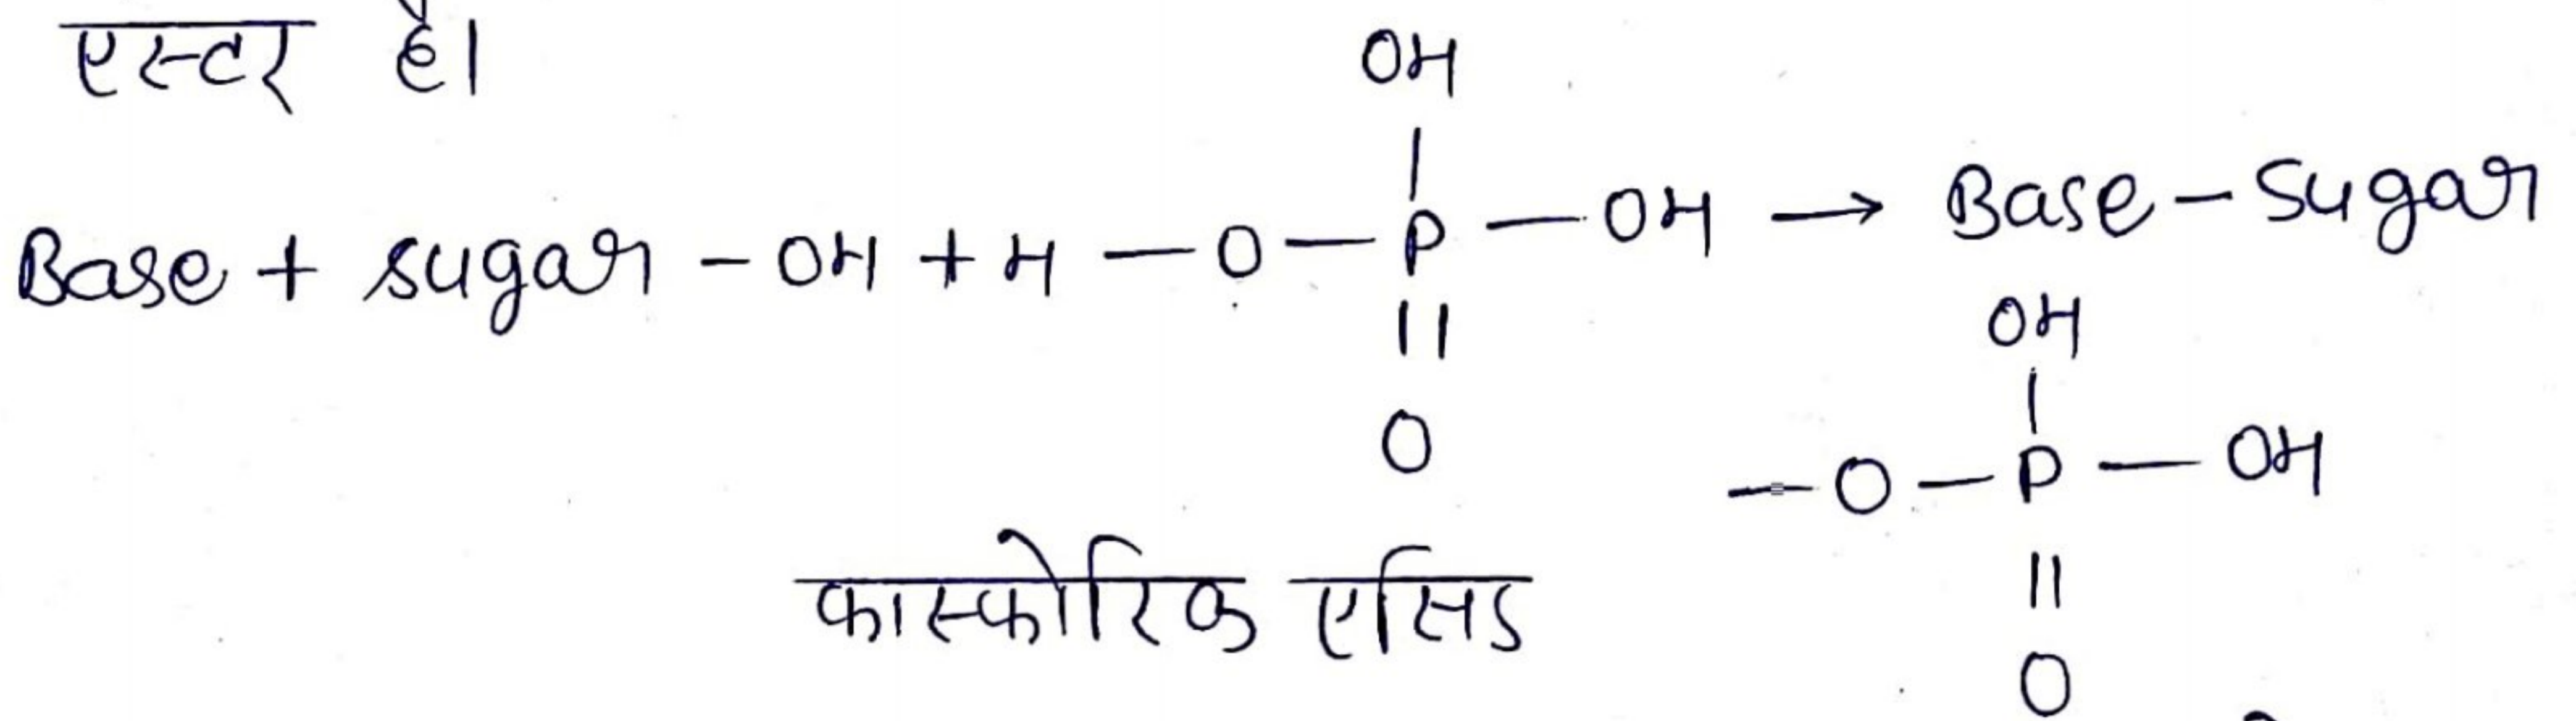 एस्टर है।
OH
|
Base + sugar - OH + H — O — P — OH → Base - Sugar
||
O
OH
|
— O — P — OH
||
O
फास्फोरिक एसिड